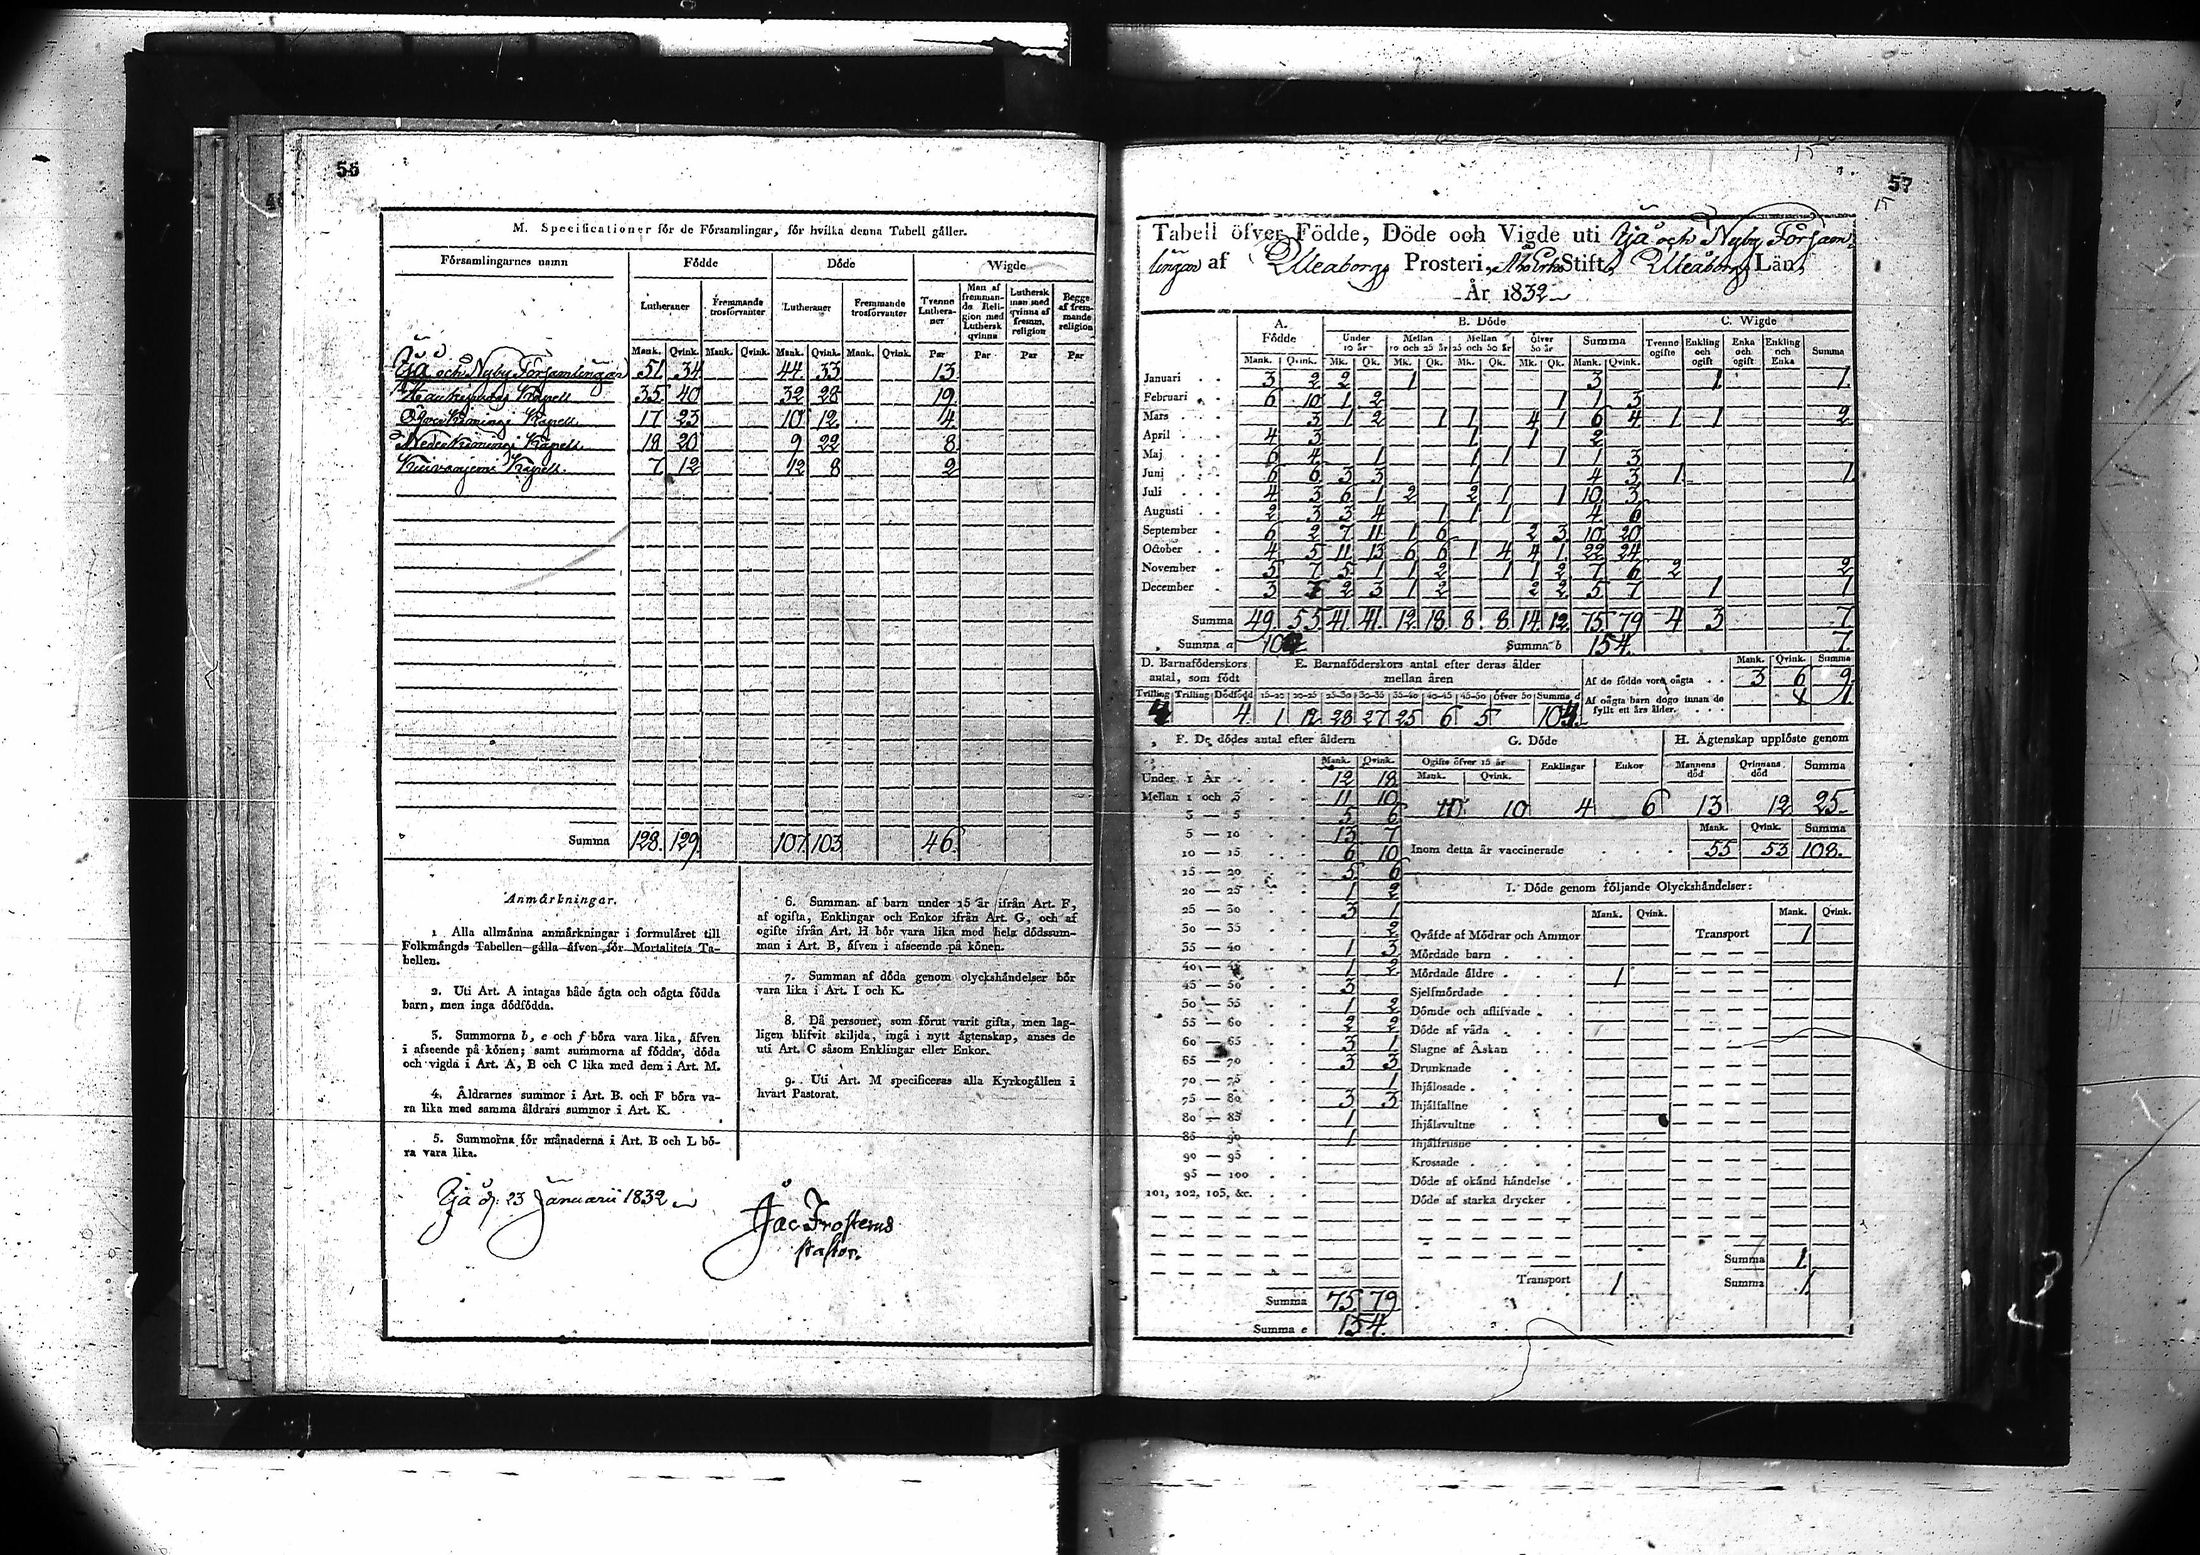 56
M. Specificationer för de Församlingar, för hvilka denna Tabell gäller.
Församlingarnes namn Födde Döde Wigde
Lutheraner Fremmande trosförvanter Lutheraner Fremmande trosförvanter Tvenne Lutheraner Man af fremmande Religion med Luthersk qvinna Luthersk man med qvinna af fremm. religion Begge af fremmande religion
Mank. Qvink. Mank. Qvink. Mank. Qvink. Mank. Qvink. Par Par Par Par
Ijå och Nyby Församlingar 51 34 44 33 13
Haukipudas Kapell 35 40 32 28 19
Öfverkiminge Kapell 17 23 10 12 4
Nederkiminge Kapell 18 20 9 22 8
Kuivaniemi Kapell 7 12 12 8 2
Summa 128 129 107 103 46
Anmärkningar.
1 Alla allmänna anmärkningar i formuläret till
Folkmängds Tabellen gälla äfven för Mortalitets Ta-
bellen.
2. Uti Art. A intagas både ägta och oägta födda
barn, men inga dödfödda.
3. Summorna b, e och f böra vara lika, äfven
i afseende på könen; samt summorna af födda, döda
och vigda i Art. A, B och C lika med dem i Art. M.
4. Åldrarnes summor i Art. B. och F böra va-
ra lika med samma åldrars summor i Art. K.
5. Summorna för månaderna i Art. B och L bö-
ra vara lika.
6. Summan af barn under 15 år ifrån Art. F,
af ogifta, Enklingar och Enkor ifrån Art. G, och af
ogifte ifrån Art. H bör vara lika med hela dödssum-
man i Art. B, äfven i afseende på könen.
7. Summan af döda genom olyckshändelser bör
vara lika i Art. I och K.
8. Då personer, som förut varit gifta, men lag-
ligen blifvit skiljda, ingå i nytt ägtenskap, anses de
uti Art. C såsom Enklingar eller Enkor.
9. Uti Art. M specificeras alla Kyrkogällen i
hvart Pastorat.
Ijå d. 23 Januarii 1832
Jac Frosterus
Pastor.
57
15
15
Tabell öfver Födde, Döde och Vigde uti Ijå och Nyby Försam-
lingar af Uleaborgs Prosteri, Åbo Erke Stift, Uleåborgs Län,
År 1832
A. Födde B. Döde C. Wigde
Under 10 år Mellan 10 och 25 år Mellan 25 och 50 år öfver 50 år Summa Tvenne ogifte Enkling och ogift Enka och ogift Enkling och Enka Summa
Mank. Qvink. Mk. Qk. Mk. Qk. Mk. Qk. Mk. Qk. Mank. Qvink.
Januari 3 2 2 1 3 1 1
Februari 6 10 1 2 1 1 3
Mars 3 1 2 1 1 4 1 6 4 1 1 2
April 4 3 1 1 2
Maj 6 4 1 1 1 1 1 3
Juni 6 6 3 3 1 4 3 1 1
Juli 4 3 6 1 2 2 1 1 10 3
Augusti 2 3 3 4 1 1 1 4 6
September 6 2 7 11 1 6 2 3 10 20
October 4 5 11 13 6 6 1 4 4 1 22 24
November 5 7 5 1 1 2 1 1 2 7 6 2 2
December 3 7 2 3 1 2 2 2 5 7 1 1
Summa 49 55 41 41 12 18 8 8 14 12 75 79 4 3 7
Summa a 104 Summa b 154 7.
D. Barnaföderskors antal, som födt E. Barnaföderskors antal efter deras ålder mellan åren Mank. Qvink. Summa
Af de födde voro oägta 3 6 9
Tvilling Trilling Dödfödd 15-20 20-25 25-30 30-35 35-40 40-45 45-50 öfver 50 Summa d
Af oägta barn dogo innan de fyllt ett års ålder. 1 1
4 1 12 28 27 25 6 5 104
F. De dödes antal efter åldern G. Döde H. Ägtenskap upplöste genom
Mank. Qvink. Ogifte öfver 15 år Enklingar Enkor Mannens död Qvinnans död Summa
Mank. Qvink.
Under 1 År 12 18
Mellan 1 och 3 11 10 10 10 4 6 13 12 25
3 — 5 5 6
5 — 10 13 7
Mank. Qvink. Summa
10 — 15 6 10
Inom detta år vaccinerade 55 53 108.
15 — 20 5 6
20 — 25 1 2
25 — 30 3 1
30 — 35 2
35 — 40 1 3
40 — 45 1 2
45 — 50 3
50 — 55 1 2
55 — 60 2 2
60 — 65 3 1
65 — 70 3 3
70 — 75 1
75 — 80 3 3
80 — 85 1
85 — 90 1
90 — 95
95 — 100
101, 102, 103, &c.
Summa 75 79
Summa e 154.
I. Döde genom följande Olyckshändelser:
Mank. Qvink. Mank. Qvink.
Qväfde af Mödrar och Ammor Transport 1
Mördade barn
Mördade äldre 1
Sjelfmördade
Dömde och aflifvade
Döde af våda
Slagne af Åskan
Drunknade
Ihjälosade
Ihjälfallne
Ihjälsvultne
Ihjälfrusne
Krossade
Döde af okänd händelse
Döde af starka drycker
Summa 1
Transport 1 Summa 1